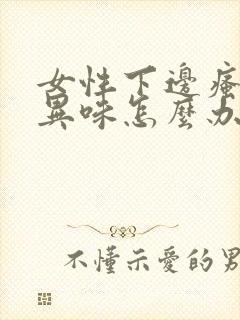 女性下邊瘙
異味怎麼办
不懂示愛的男